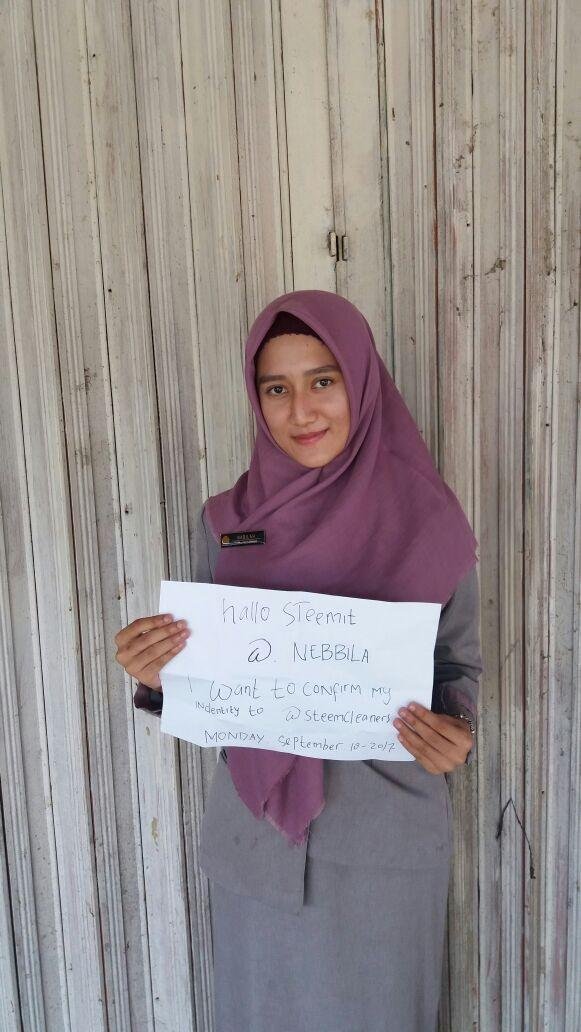 hallo STeemit
@. NEBBILA
I want to confirm my
INdentity to @steemcleaners
MONDAY. September 18-2017